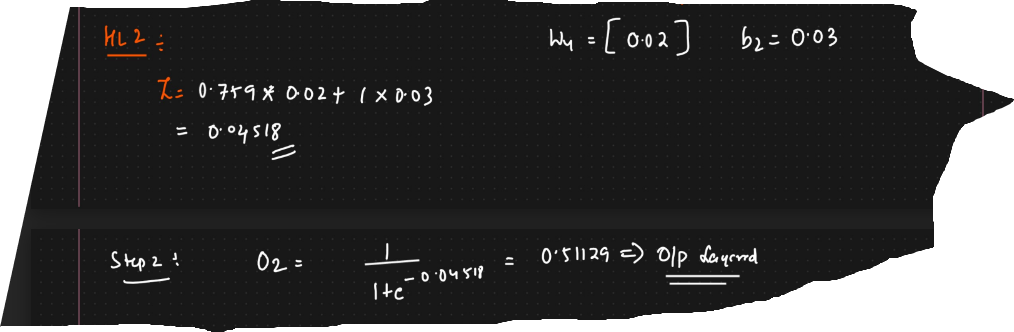 HL2 : W4 = [0.02] b2 = 0.03
Z = 0.759 * 0.02 + 1 × 0.03
= 0.04518
Step 2 : O2 = 1 / 1+e^-0.04518 = 0.51129 => O/p